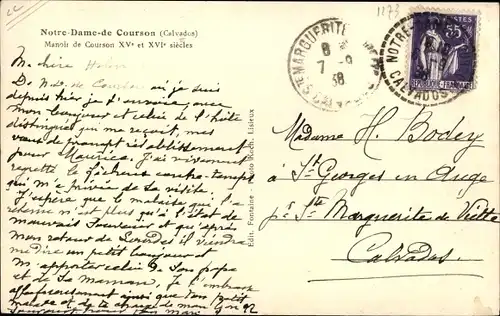 1173
Notre-Dame-de Courson (Calvados)
Manoir de Courson XVe et XVIe siècles
Ma chère
De N.D. de Courson où je suis
depuis hier je t'envoie, avec
mon bonjour et celui de l'hôte
distingué qui me reçoit, mes
vœux de prompt rétablissement
pour Maurice. J'ai vivement
regretté le fâcheux contre-temps
qui m'a privée de sa visite.
J'espère que le malaise qui l'a
retenu n'est plus qu'à l'état de
mauvais souvenir et qu'après
mon retour de Lourdes il viendra
me dire un petit bonjour et
m'apporter celui de son papa
et de sa Maman. Je t'embrasse
affectueusement ainsi que ton petit
Edit. Fontaine - Photo Lisieux
STE MARGUERITE
7 -9
38
NOTRE-DAME
CALVADOS
POSTES
35
REPUBLIQUE FRANÇAISE
Madame H. Bodey
à St Georges en Auge
pr Ste Marguerite de Viette
Calvados